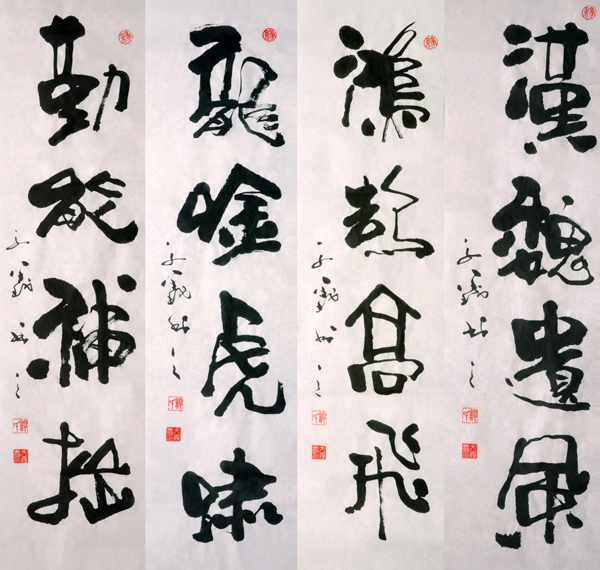 漢魏遺風
鴻鵠高飛
龍唫虎嘯
勤能補拙